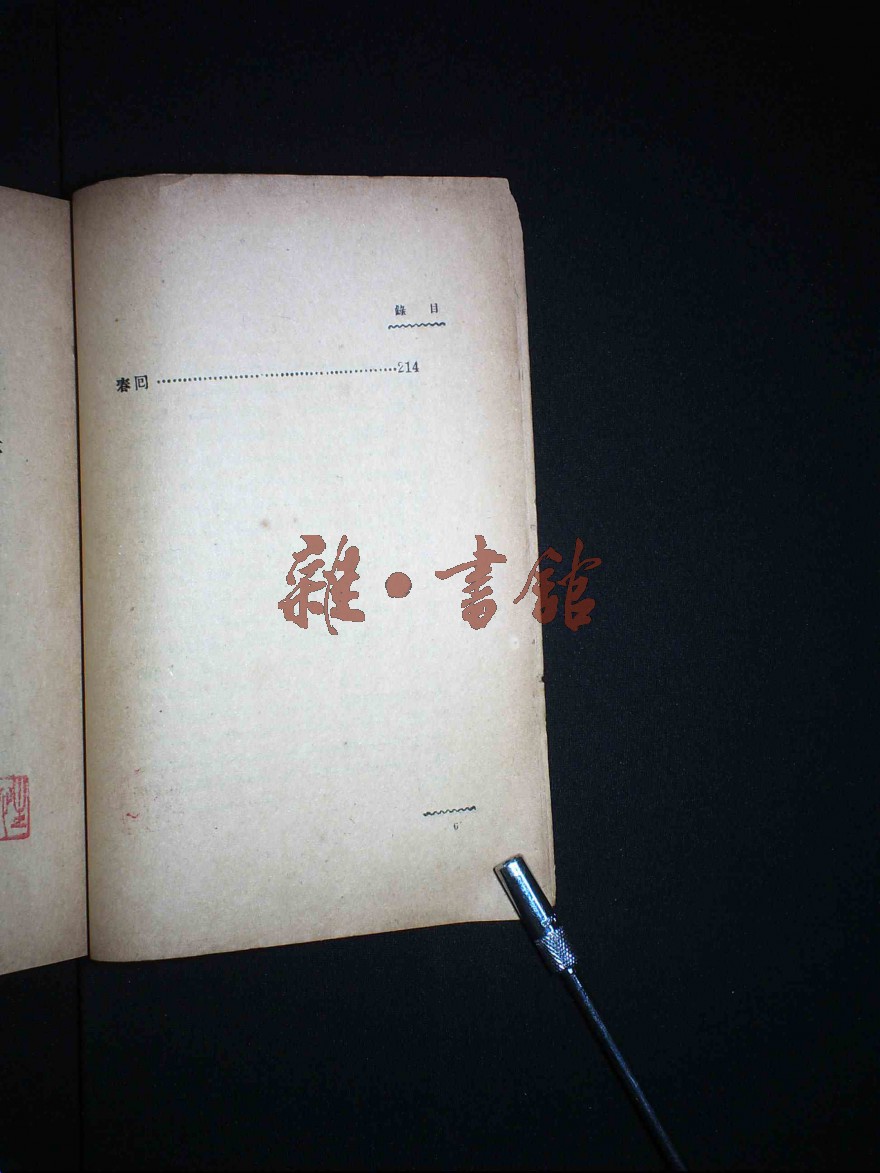 錄 目
春回 ……………………………………214
雜·書館
6